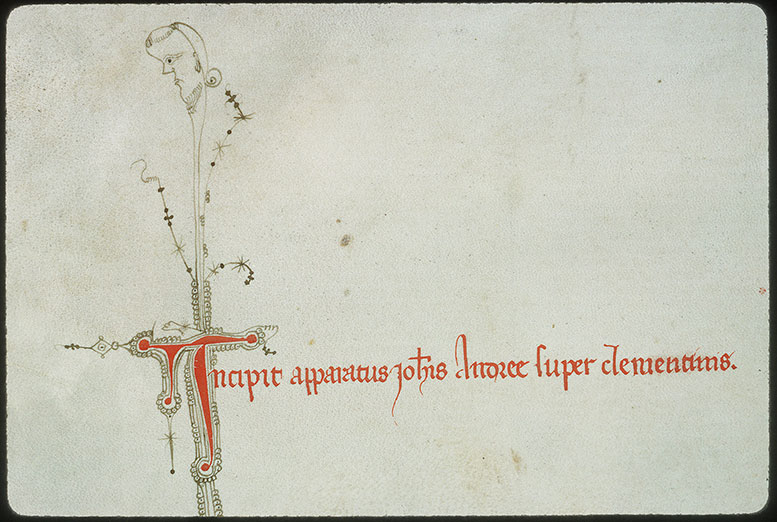 Incipit apparatus joh̄is Andree super clementinis.